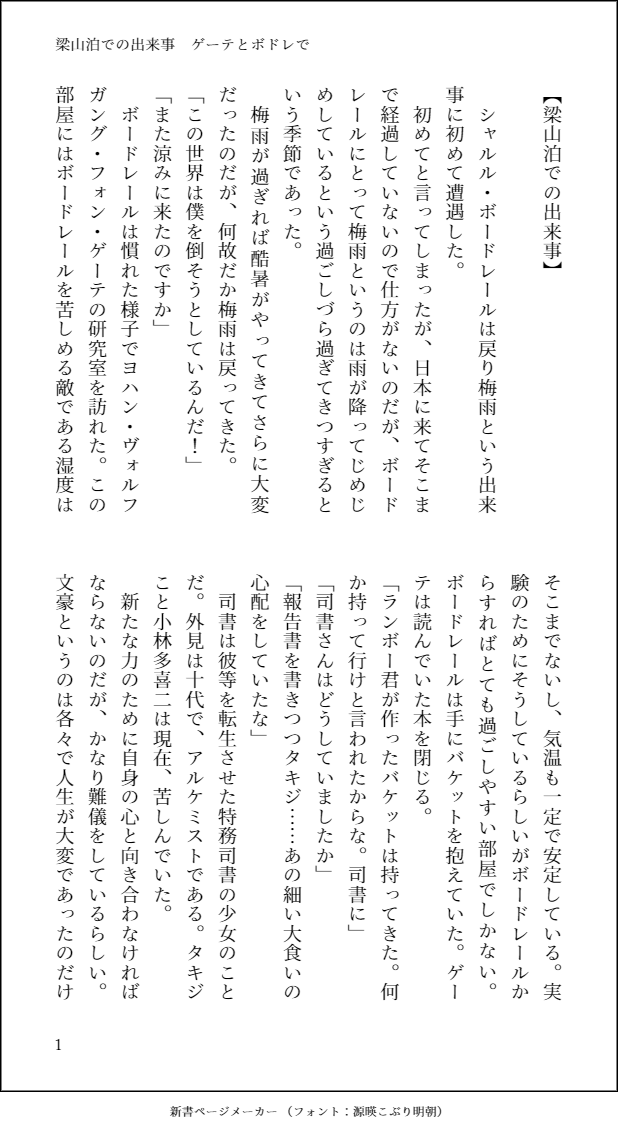 梁山泊での出来事　ゲーテとボドレで
【梁山泊での出来事】
　シャルル・ボードレールは戻り梅雨という出来
事に初めて遭遇した。
　初めてと言ってしまったが、日本に来てそこま
で経過していないので仕方がないのだが、ボード
レールにとって梅雨というのは雨が降ってじめじ
めしているという過ごしづら過ぎてきつすぎると
いう季節であった。
　梅雨が過ぎれば酷暑がやってきてさらに大変
だったのだが、何故だか梅雨は戻ってきた。
「この世界は僕を倒そうとしているんだ！」
「また涼みに来たのですか」
　ボードレールは慣れた様子でヨハン・ヴォルフ
ガング・フォン・ゲーテの研究室を訪れた。この
部屋にはボードレールを苦しめる敵である湿度は
そこまでないし、気温も一定で安定している。実
験のためにそうしているらしいがボードレールか
らすればとても過ごしやすい部屋でしかない。
ボードレールは手にバケットを抱えていた。ゲー
テは読んでいた本を閉じる。
「ランボー君が作ったバケットは持ってきた。何
か持って行けと言われたからな。司書に」
「司書さんはどうしていましたか」
「報告書を書きつつタキジ……あの細い大食いの
心配をしていたな」
　司書は彼等を転生させた特務司書の少女のこと
だ。外見は十代で、アルケミストである。タキジ
こと小林多喜二は現在、苦しんでいた。
　新たな力のために自身の心と向き合わなければ
ならないのだが、かなり難儀をしているらしい。
文豪というのは各々で人生が大変であったのだけ
1
新書ページメーカー（フォント：源暎こぶり明朝）